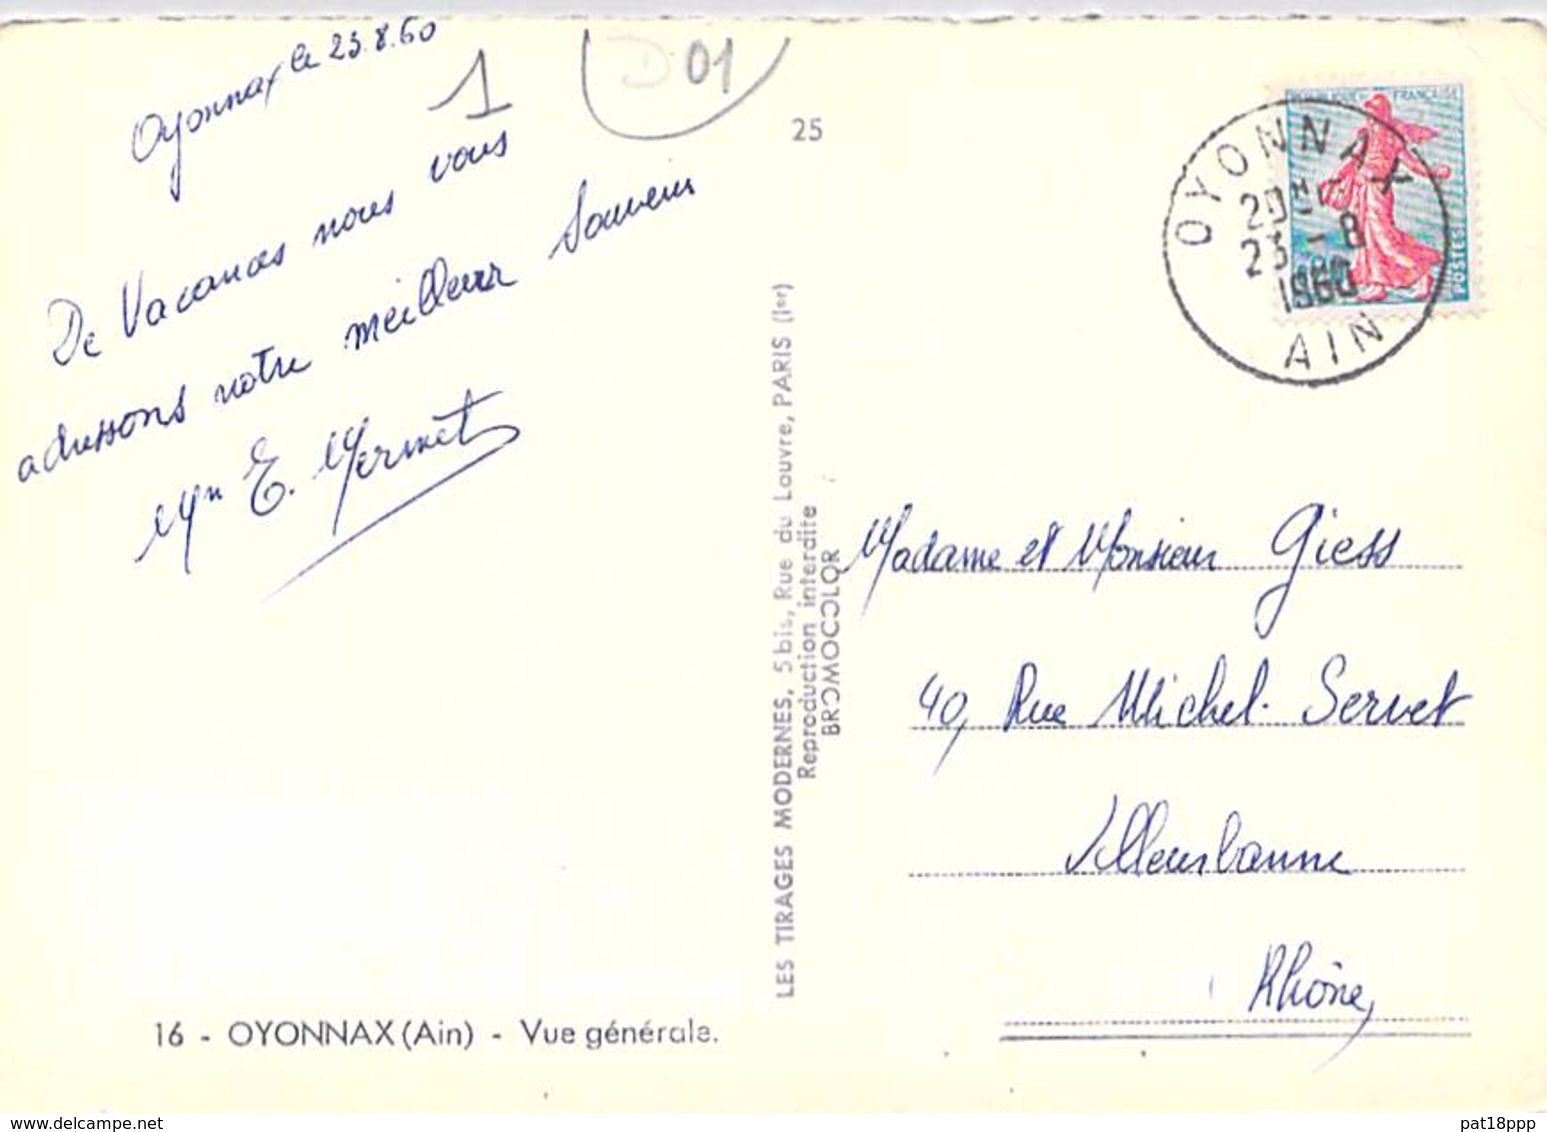 Oyonnax le 23.8.60
1
D 01
25
De Vacances nous vous
adressons notre meilleur Souvenir
Mr E. Mermet
RÉPUBLIQUE FRANÇAISE
POSTES
OYONNAX
23 - 8
1960
AIN
LES TIRAGES MODERNES, 5 bis, Rue du Louvre, PARIS (Ier)
Reproduction interdite
BROMOCOLOR
Madame et Monsieur Giess
40, Rue Michel-Servet
Villeurbanne
Rhône,
16 - OYONNAX (Ain) - Vue générale.
pat18ppp